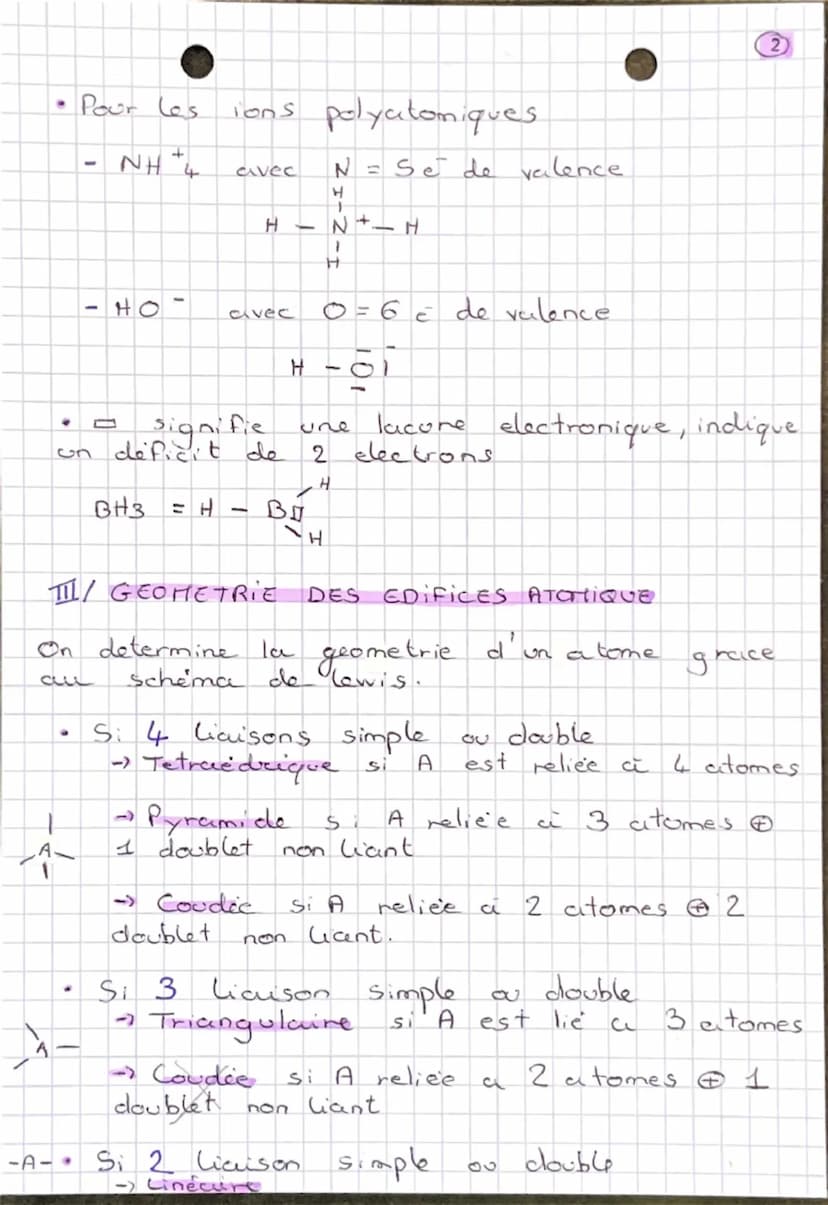 2
• Pour les ions polyatomiques
- NH⁺₄ avec N = 5 e⁻ de valence
H
H - N⁺ - H
H
- HO⁻ avec O = 6 e⁻ de valence
H - O⁻
• ▭ signifie une lacune electronique, indique
un déficit de 2 electrons
H
BH3 = H - B▯
H
III/ GEOMETRiE DES EDiFiCES ATOMiQUE
On determine la geometrie d'un atome grace
au schéma de lewis.
• Si 4 liaisons simple ou double
→ Tetraédrique si A est reliée à 4 atomes
→ Pyramide si A reliée à 3 atomes ⊕
A
1 doublet non liant
→ Coudée si A reliée à 2 atomes ⊕ 2
doublet non liant.
• Si 3 liaison simple ou double
→ Triangulaire si A est lié a 3 atomes
A
→ Coudée si A reliée a 2 atomes ⊕ 1
doublet non liant
-A- • Si 2 liaison simple ou double
→ Linéaire